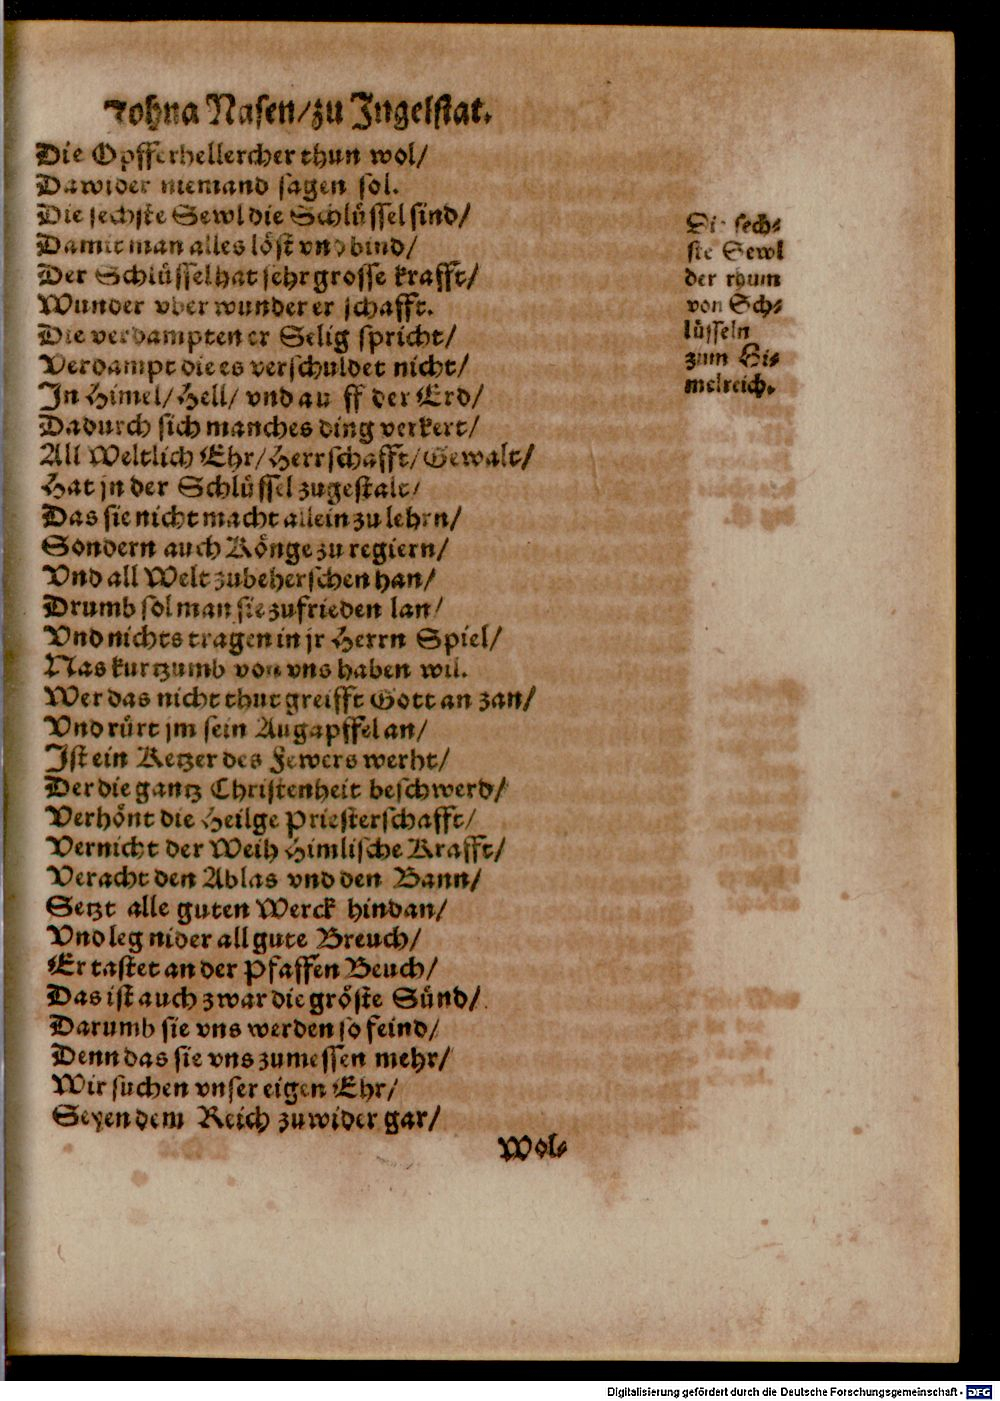 Johna Nasen/zu Jngelstat.
Die Opfferhellercher thun wol/
Dawider niemand sagen sol.
Die sechste Sewl die Schlüssel sind/
Damit man alles löst vnd bind/
Der Schlüssel hat sehr grosse krafft/
Wunder vber wunder er schafft.
Die verdampten er Selig spricht/
Verdampt die es verschuldet nicht/
Jn Himel/Hell/ vnd auff der Erd/
Dadurch sich manches ding verkert/
All Weltlich Ehr/Herrschafft/Gewalt/
Hat jn der Schlüssel zugestalt/
Das sie nicht macht allein zu lehrn/
Sondern auch Könge zu regiern/
Vnd all Welt zubeherschen han/
Drumb sol man sie zufrieden lan/
Vnd nichts tragen in jr Herrn Spiel/
Nas kurtzumb von vns haben wil.
Wer das nicht thut greifft Gott an zan/
Vnd rürt jm sein Augapffel an/
Jst ein Ketzer des Fewers werht/
Der die gantz Christenheit beschwerd/
Verhönt die Heilge Priesterschafft/
Vernicht der Weih Himlische Krafft/
Veracht den Ablas vnd den Bann/
Setzt alle guten Werck hindan/
Vnd leg nider all gute Breuch/
Er tastet an der Pfaffen Beuch/
Das ist auch zwar die gröste Sünd/
Darumb sie vns werden so feind/
Denn das sie vns zumessen mehr/
Wir suchen vnser eigen Ehr/
Seyen dem Reich zuwider gar/
Wol-
Die sech-
ste Sewl
der rhum
von Sch-
lüsseln
zum Hi-
melreich.
Digitalisierung gefördert durch die Deutsche Forschungsgemeinschaft - DFG